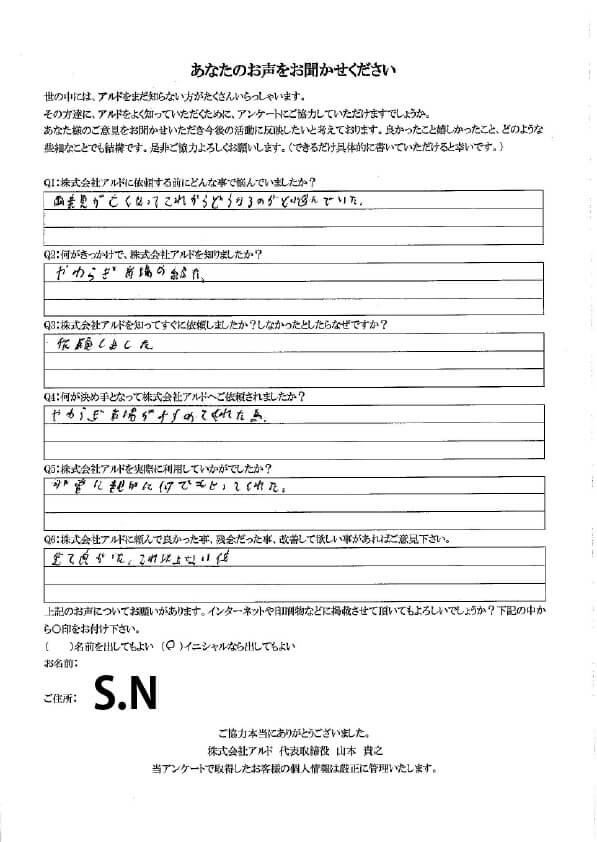 あなたのお声をお聞かせください
世の中には、アルドをまだ知らない方がたくさんいらっしゃいます。
その方達に、アルドをよく知っていただくために、アンケートにご協力していただけますでしょうか。
あなた様のご意見をお聞かせいただき今後の活動に反映したいと考えております。良かったこと嬉しかったこと、どのような
些細なことでも結構です。是非ご協力よろしくお願いします。（できるだけ具体的に書いていただけると幸いです。）
Q1：株式会社アルドに依頼する前にどんな事で悩んでいましたか？
が亡くなってこれからどうするのか悩んでいた。
Q2：何がきっかけで、株式会社アルドを知りましたか？
やわらぎ斉場の紹介。
Q3：株式会社アルドを知ってすぐに依頼しましたか？しなかったとしたらなぜですか？
依頼しました
Q4：何が決め手となって株式会社アルドへご依頼されましたか？
やわらぎ斉場がすすめてくれた為。
Q5：株式会社アルドを実際に利用していかがでしたか？
非常に親切に何でもしてくれた。
Q6：株式会社アルドに頼んで良かった事、残念だった事、改善して欲しい事があればご意見下さい。
全て良かった。これ以上ない
上記のお声についてお願いがあります。インターネットや印刷物などに掲載させて頂いてもよろしいでしょうか？下記の中か
ら〇印をお付け下さい。
（　）名前を出してもよい（〇）イニシャルなら出してもよい
お名前：
ご住所： S.N
ご協力本当にありがとうございました。
株式会社アルド 代表取締役 山本 貴之
当アンケートで取得したお客様の個人情報は厳正に管理いたします。